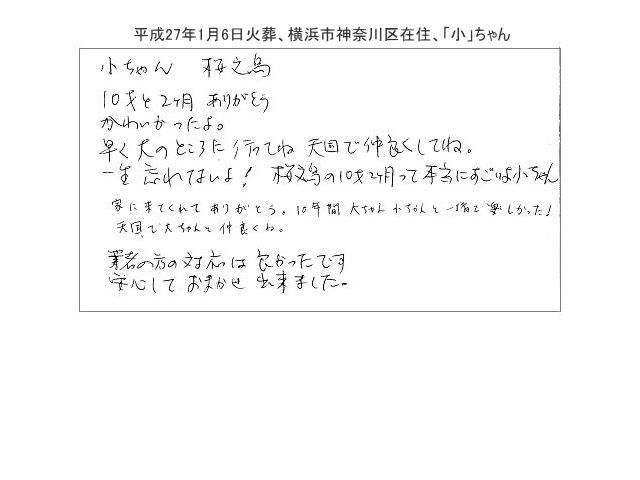 平成27年1月6日火葬、横浜市神奈川区在住、「小」ちゃん
小ちゃん 桜文鳥
10才と2ヶ月 ありがとう
かわいかったよ。
早く大のところに行ってね 天国で仲良くしてね。
一生忘れないよ! 桜文鳥の10才2ヶ月って本当にすごいよ小ちゃん
家に来てくれてありがとう。10年間大ちゃん小ちゃんと一緒で楽しかった!
天国で大ちゃんと仲良くね。
業者の方の対応は良かったです
安心しておまかせ出来ました。